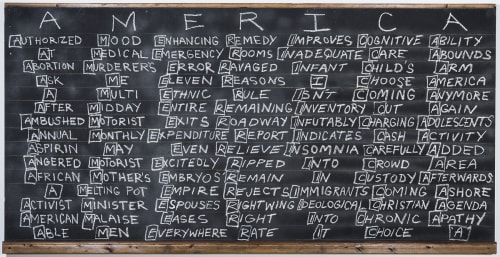 A M E R I C A
AUTHORIZED MOOD ENHANCING REMEDY IMPROVES COGNITIVE ABILITY
AT MEDICAL EMERGENCY ROOMS INADEQUATE CARE ABOUNDS
ABORTION MURDERER'S ERROR RAVAGED INFANT CHILD'S ARM
ASK ME ELEVEN REASONS I CHOOSE AMERICA
A MULTI ETHNIC RULE ISN'T COMING ANYMORE
AFTER MIDDAY ENTIRE REMAINING INVENTORY OUT AGAIN
AMBUSHED MOTORIST EXITS ROADWAY CHARGING ADOLESCENTS
ANNUAL MONTHLY EXPENDITURE REPORT INDICATES CASH ACTIVITY
ASPIRIN MAY EVEN RELIEVE INSOMNIA CAREFULLY ADDED
ANGERED MOTORIST EXCITEDLY RIPPED INTO CROWD AREA
AFRICAN MOTHER'S EMBRYOS REMAIN IN CUSTODY AFTERWARDS
A MELTING POT EMPIRE REJECTS IMMIGRANTS COMING ASHORE
ACTIVIST MINISTER ESPOUSES RIGHTWING IDEOLOGICAL CHRISTIAN AGENDA
AMERICAN MALAISE EASES RIGHT INTO CHRONIC APATHY
ABLE MEN EVERYWHERE RATE IT CHOICE "A"